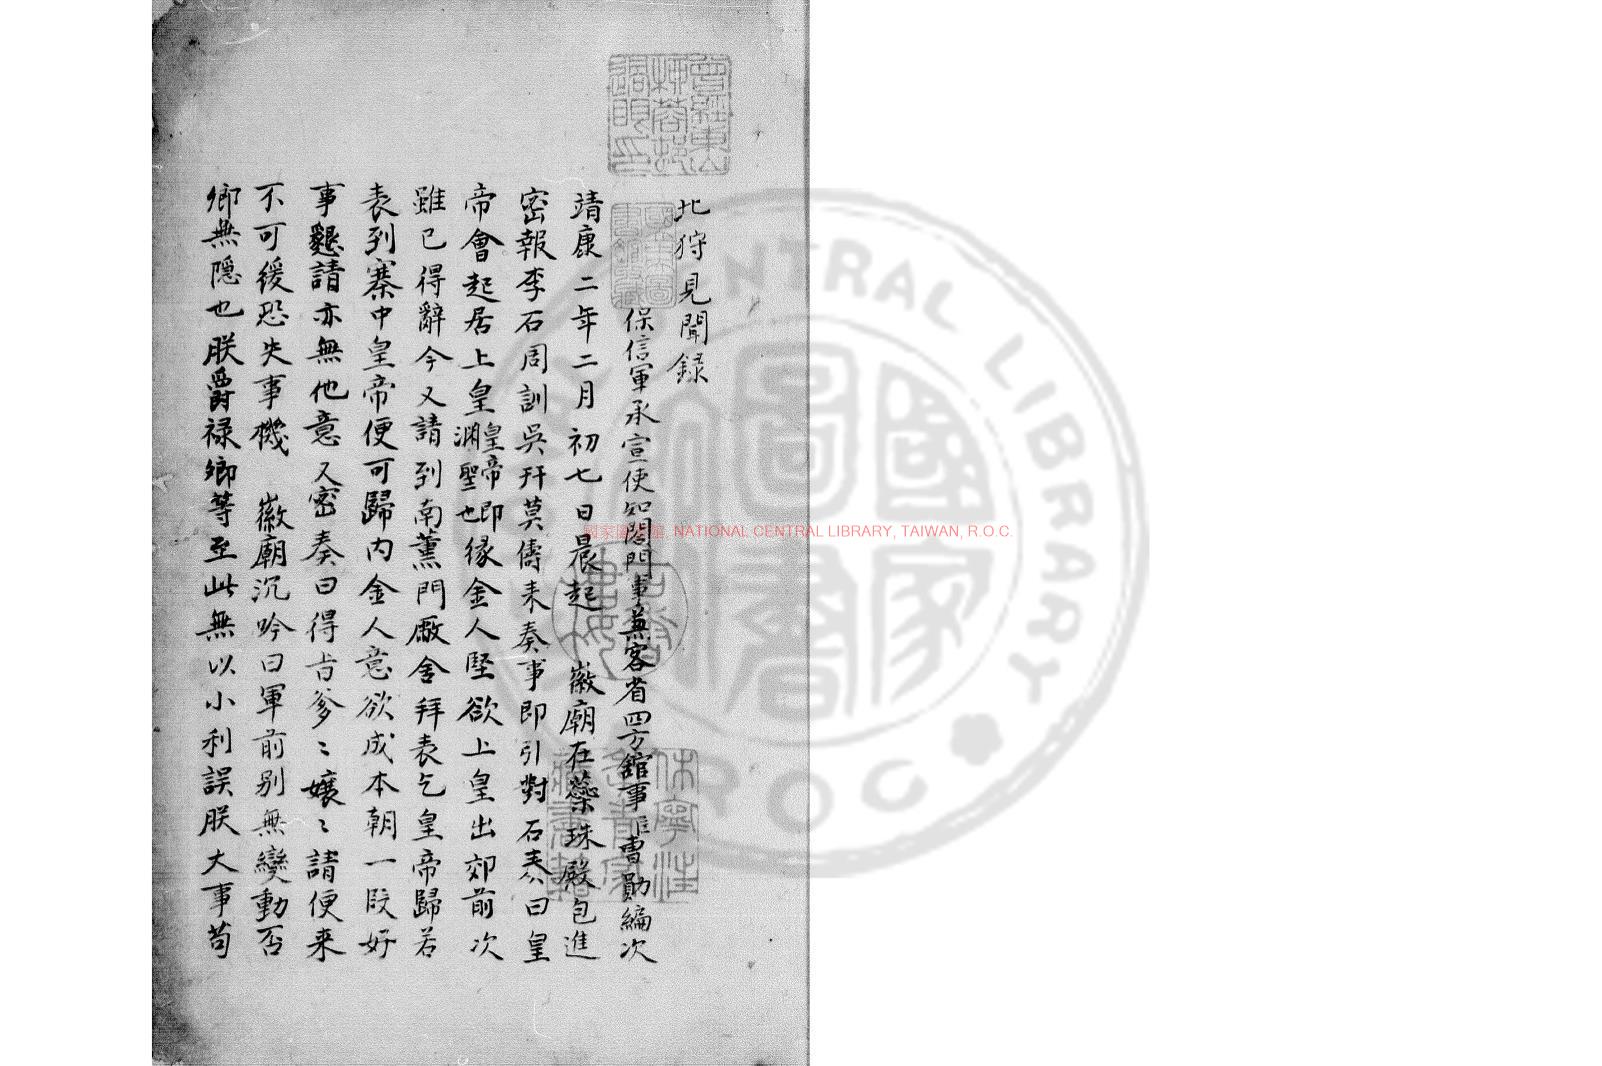 北狩見聞錄
保信軍承宣使知閤門事兼客省四方館事臣曹勛編次
靖康二年二月初七日晨起 徽廟在蘂珠殿包進
密報李石周訓吳幵莫儔来奏事即引對石奏曰皇
帝會起居上皇皇帝即淵聖也緣金人堅欲上皇出郊前次
雖已得辭今又請到南薰門廒舍拜表乞皇帝歸若
表到寨中皇帝便可歸內金人意欲成本朝一段好
事懇請亦無他意又密奏曰得旨爹〻孃〻請便来
不可緩恐失事機 徽廟沉吟曰軍前别無變動否
鄉無隱也朕爵祿鄉等至此無以小利誤朕大事苟
國家圖書館, NATIONAL CENTRAL LIBRARY, TAIWAN, R.O.C.